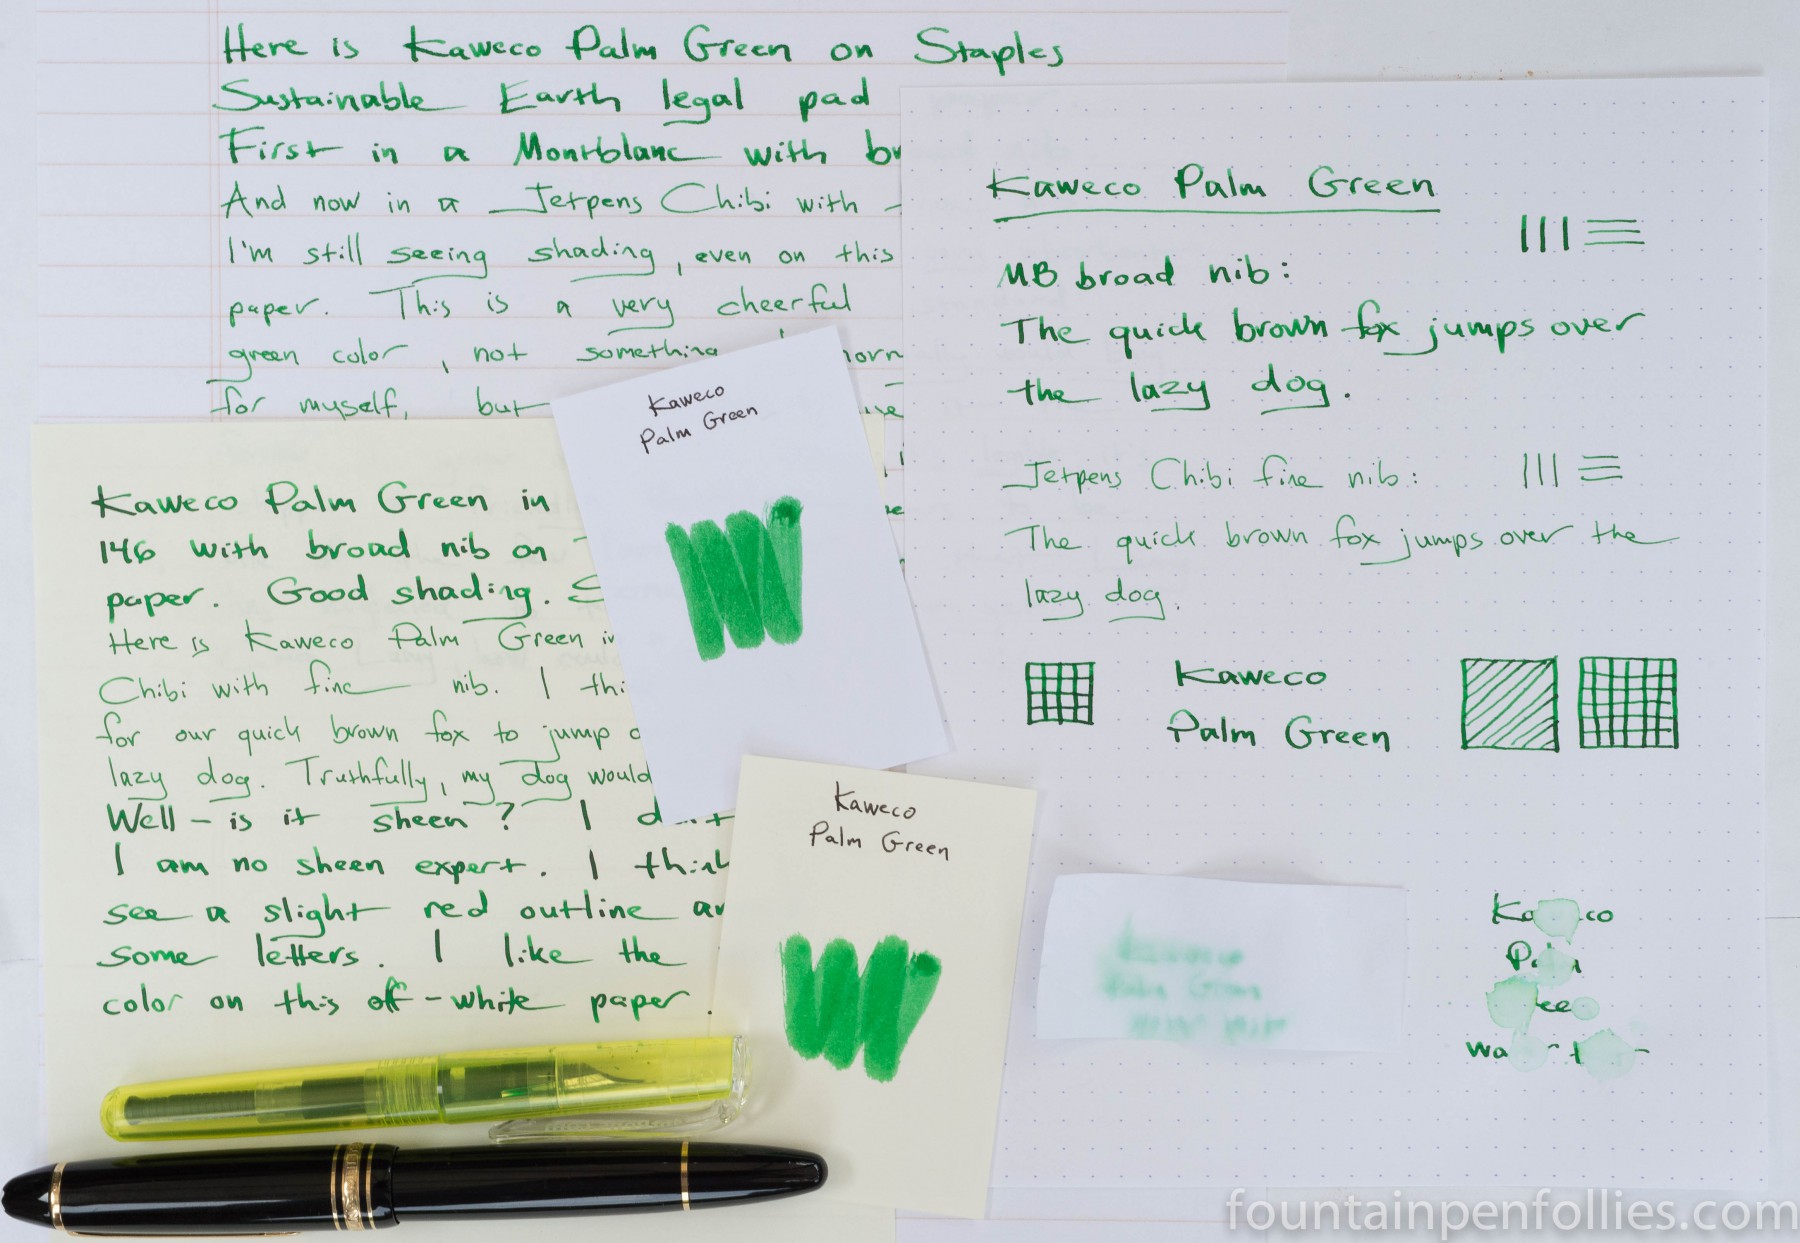 Here is Kaweco Palm Green on Staples
Sustainable Earth legal pad
First in a Montblanc with
And now in a Jetpens Chibi with
I'm still seeing shading, even on this
paper. This is a very cheerful
green color, not something
for myself, but
Kaweco Palm Green in
146 with broad nib on
paper. Good shading.
Here is Kaweco Palm Green
Chibi with fine nib. I
for our quick brown fox to jump
lazy dog. Truthfully, my dog would
Well - is it sheen? I
I am no sheen expert. I
see a slight red outline
some letters. I like the
color on this off-white paper.
Kaweco
Palm Green
Kaweco
Palm Green
Kaweco Palm Green
MB broad nib:
The quick brown fox jumps over
the lazy dog.
Jetpens Chibi fine nib:
The quick brown fox jumps over the
lazy dog.
Kaweco
Palm Green
fountainpenfollies.com